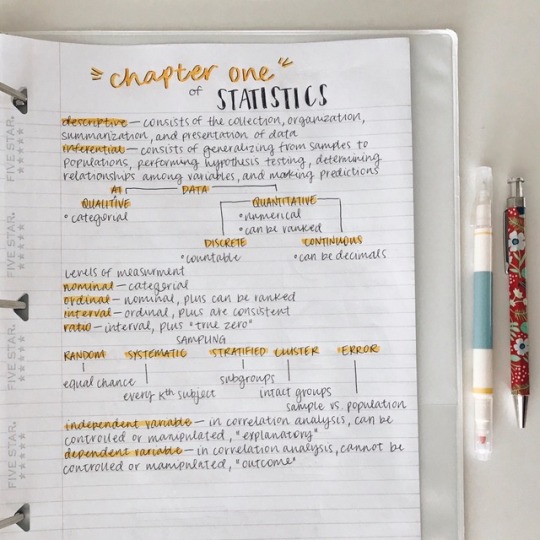 "chapter one"
of STATISTICS
descriptive — consists of the collection, organization,
summarization, and presentation of data
inferential — consists of generalizing from samples to
populations, performing hypothesis testing, determining
relationships among variables, and making predictions
DATA
QUALITIVE QUANTITATIVE
• categorial • numerical
• can be ranked
DISCRETE CONTINUOUS
• countable • can be decimals
levels of measurment
nominal — categorial
ordinal — nominal, plus can be ranked
interval — ordinal, plus are consistent
ratio — interval, plus "true zero"
SAMPLING
RANDOM SYSTEMATIC STRATIFIED CLUSTER ERROR
equal chance subgroups
every kth subject intact groups
sample vs. population
independent variable — in correlation analysis, can be
controlled or manipulated, "explanatory"
dependent variable — in correlation analysis, cannot be
controlled or manipulated, "outcome"
FIVE STAR.
FIVE STAR.
FIVE STAR.
FIVE STAR.
FIVE STAR.